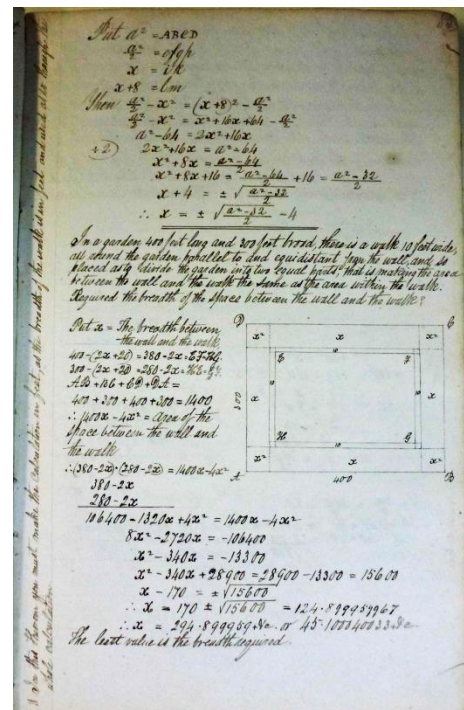 Put a² = ABCD
a²/2 = efgh
x = ik
x+8 = lm
Then a²/2 - x² = (x+8)² - a²/2
a²/2 - x² = x² + 16x + 64 - a²/2
∴ a² - 64 = 2x² + 16x
÷2) 2x² + 16x = a² - 64
x² + 8x = a² - 64 / 2
x² + 8x + 16 = a² - 64 / 2 + 16 = a² - 32 / 2
x + 4 = ± √ a² - 32 / 2
∴ x = ± √ a² - 32 / 2 - 4
In a garden 400 feet long and 300 feet broad, there is a walk 10 feet wide,
all round the garden parallel to and equidistant from the wall, and so
placed as to divide the garden into two equal parts, that is making the area
between the wall and the walk the same as the area within the walk.
Required the breadth of the space between the wall and the walk?
Put x = The breadth between
the wall and the walk
400 - (2x + 20) = 380 - 2x = EF = HG
300 - (2x + 20) = 280 - 2x = HE = GF
AB + BC + CD + DA =
400 + 300 + 400 + 300 = 1400
∴ 1400x - 4x² = Area of the
space between the wall and
the walk
∴ (380 - 2x) · (280 - 2x) = 1400x - 4x²
380 - 2x
280 - 2x
106400 - 1320x + 4x² = 1400x - 4x²
8x² - 2720x = -106400
x² - 340x = -13300
x² - 340x + 28900 = 28900 - 13300 = 15600
x - 170 = ± √15600
∴ x = 170 ± √15600 = 124.899959967
∴ x = 294.899959 &c. or 45.100040033 &c.
The least value is the breadth required.
D C
x² x x²
10
E F
300 x 10 10 x
H G
10
x² x x²
A 400 B
you must make the calculation in feet, as the breadth of the walk is in feet and used also through the
whole calculation.